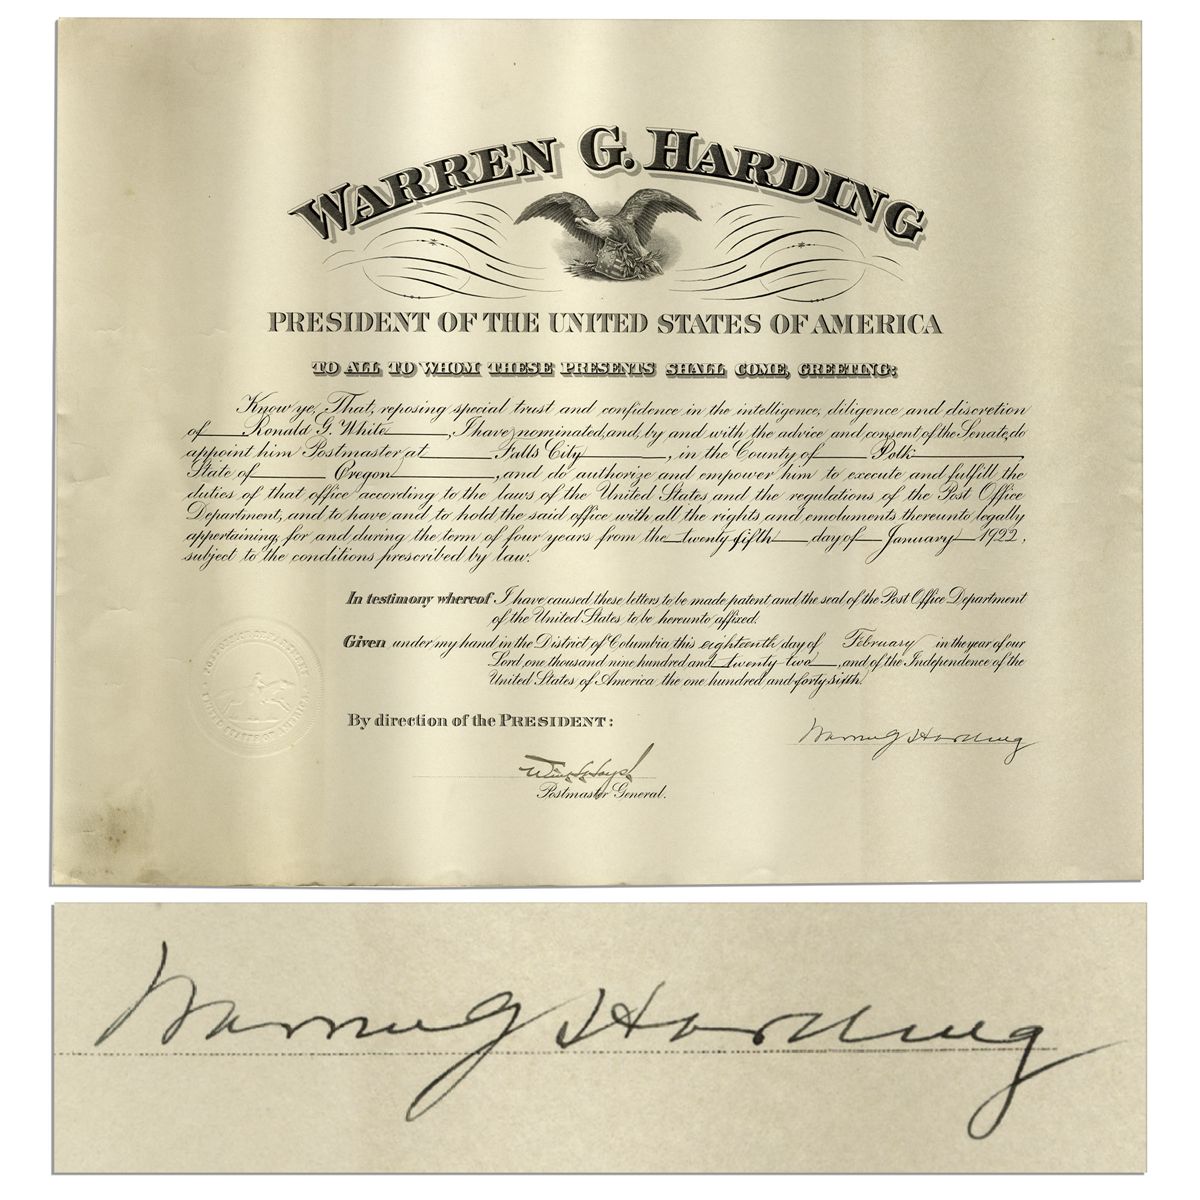 WARREN G. HARDING
PRESIDENT OF THE UNITED STATES OF AMERICA
TO ALL TO WHOM THESE PRESENTS SHALL COME, GREETING:
Know ye, That, reposing special trust and confidence in the intelligence, diligence and discretion
of Ronald G. White, I have nominated, and, by and with the advice and consent of the Senate, do
appoint him Postmaster at Falls City, in the County of Polk,
State of Oregon, and do authorize and empower him to execute and fulfill the
duties of that office according to the laws of the United States and the regulations of the Post Office
Department, and to have and to hold the said office with all the rights and emoluments thereunto legally
appertaining, for and during the term of four years from the twenty fifth day of January 1922,
subject to the conditions prescribed by law.
In testimony whereof I have caused these letters to be made patent and the seal of the Post Office Department
of the United States to be hereunto affixed.
Given under my hand in the District of Columbia this eighteenth day of February in the year of our
Lord one thousand nine hundred and twenty two, and of the Independence of the
United States of America the one hundred and forty sixth.
POST OFFICE DEPARTMENT
UNITED STATES OF AMERICA
By direction of the PRESIDENT:
Warren G Harding
Will H. Hays
Postmaster General.
Warren G Harding